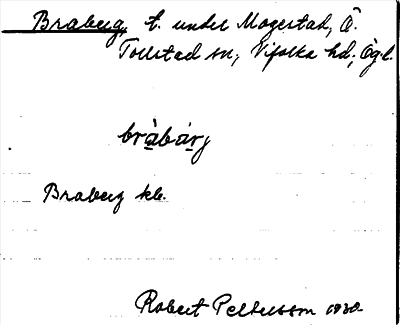 Braberg, t. under Mogestad, Ö.
Tollstad sn, Vifolka hd, Ög.l.
bràbárj
Braberg kb.
Robert Pettersson 1930